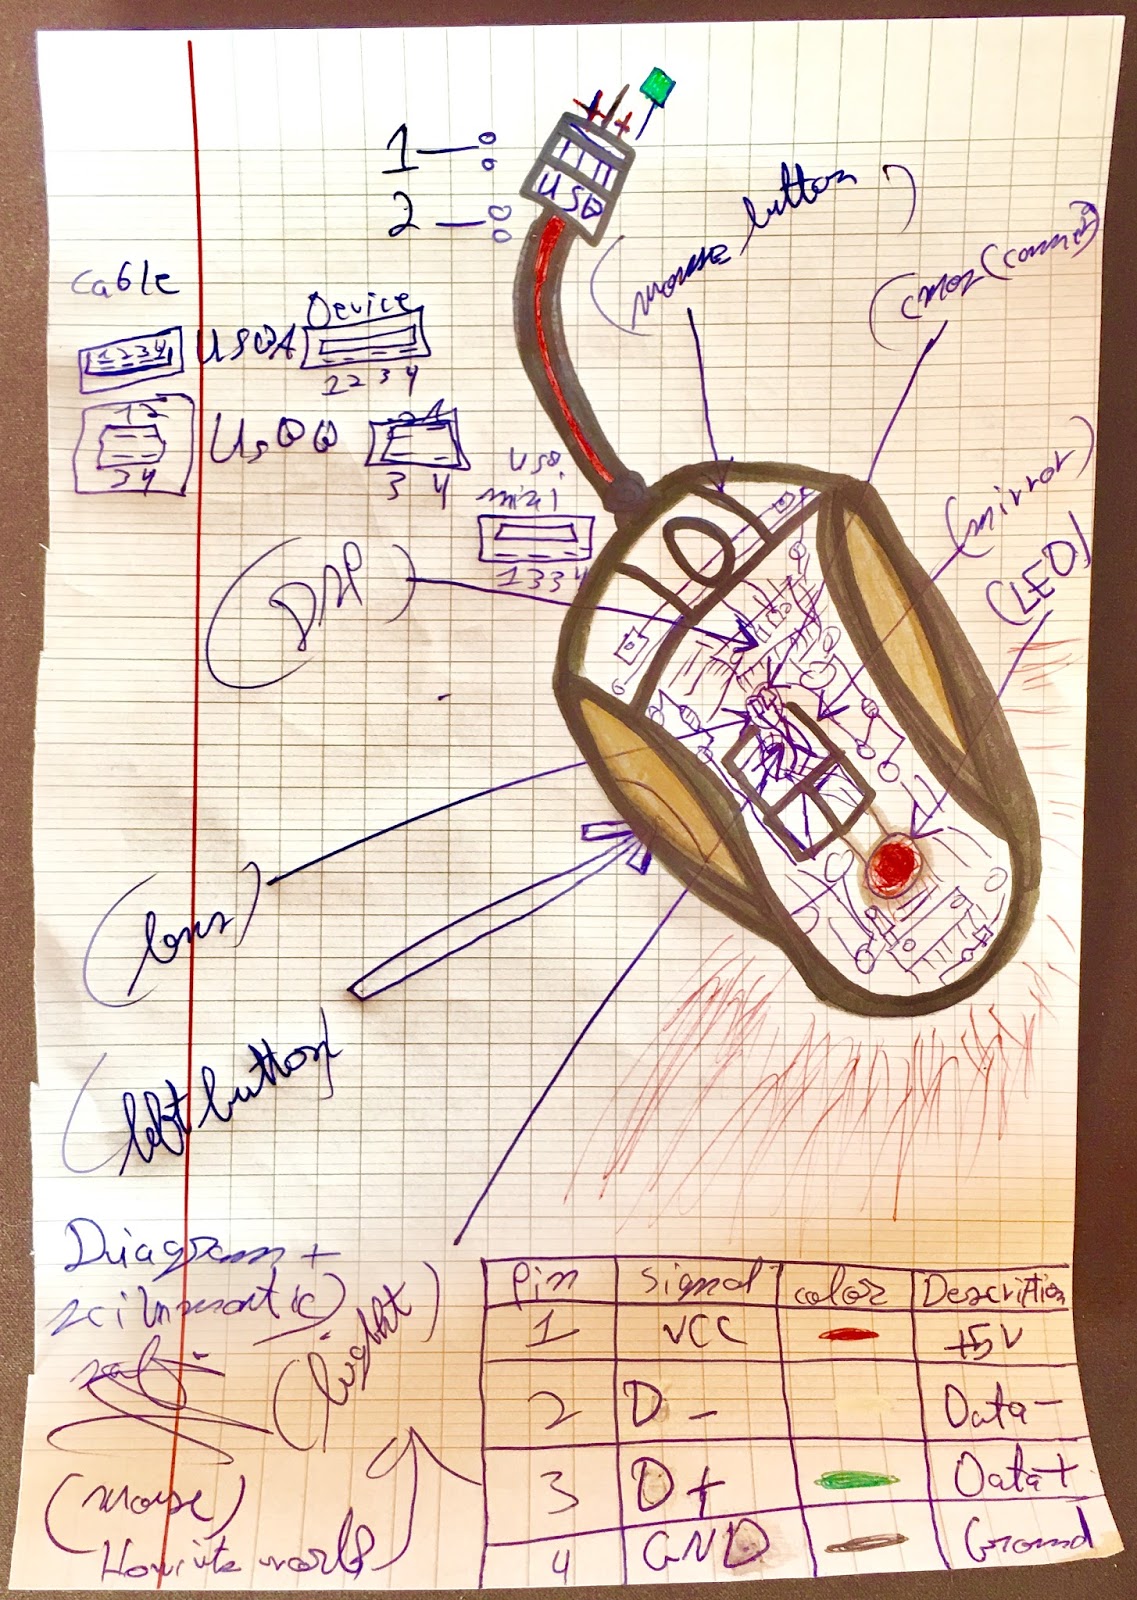 1
2
USB
cable
Device
1 2 3 4
USBA
1 2 3 4
12
34
USBB
3 4
USB
mini
1 3 3 4
(mouse button)
(mirror)
(LED)
(DSP)
(lens)
(left button)
Diagram +
(light)
(mouse)
How it work
pin signal color Description
1 VCC +5V
2 D - Data -
3 D + Data +
4 GND Ground